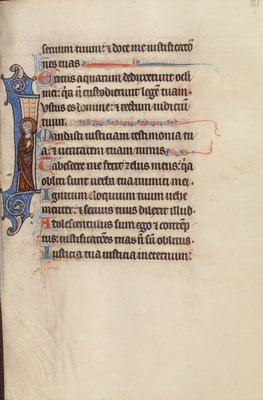 181
seruum tuum: & doce me iustificatõ
nes tuas
Exitus aquarum deduxerunt oculi
mei: qͥa ñ custodierunt legẽ tuam
Iustus es domine: & rectum iudiciũ
tuum
Mandasti iusticiam testimonia tu
a: & ueritatem tuam nimis
Tabescere me fecit zelus meus: qͥa
obliti sunt uerba tua inimici mei
Ignitum eloquium tuum uehe
menter: & seruus tuus dilexit illud
Adolescentulus sum ego & contẽp
tus: iustificatões tuas ñ sũ oblitus
Iusticia tua iusticia ineternum: